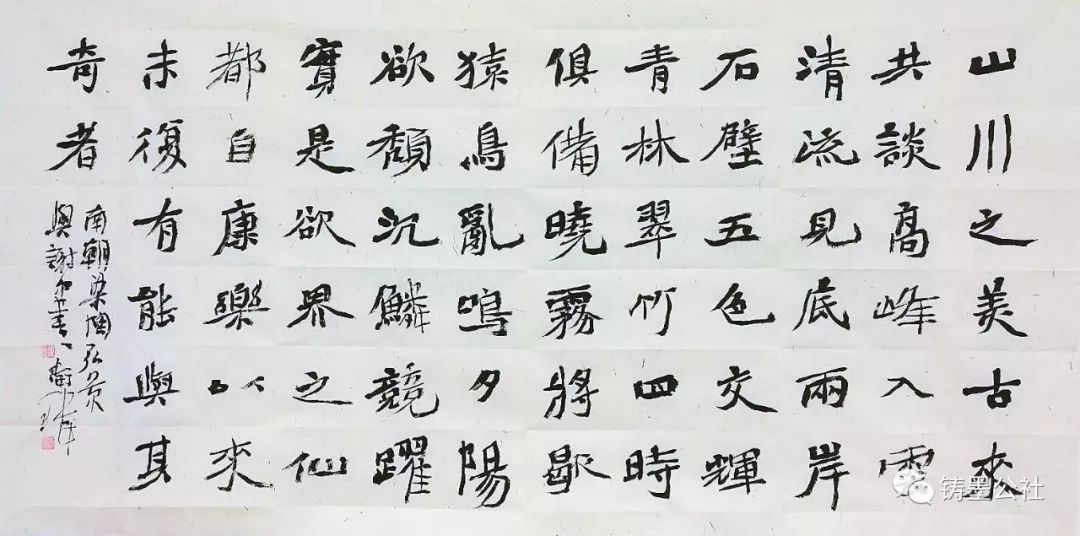 山川之美古來
共談高峰入雲
清流見底兩岸
石壁五色交輝
青林翠竹四時
俱備曉霧將歇
猿鳥亂鳴夕陽
欲頹沉鱗競躍
實是欲界之仙
都自康樂以來
未復有能與其
奇者
南朝梁陶弘景
與謝中書書
铸墨公社